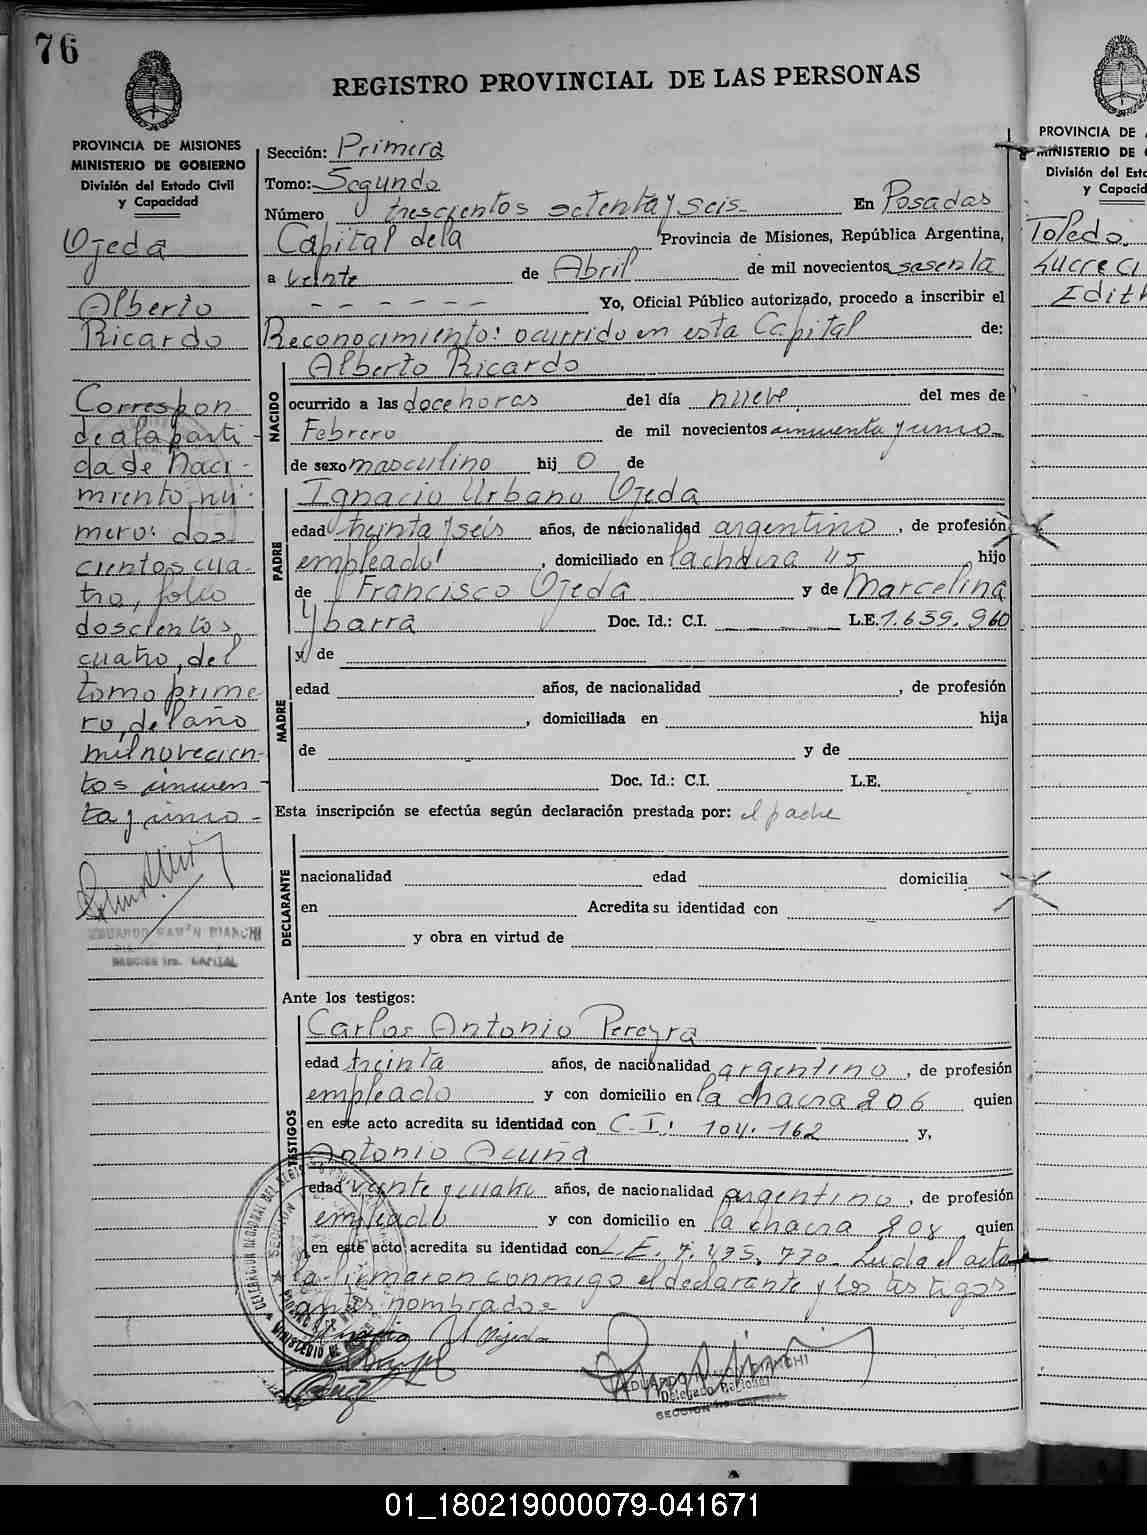 76
REGISTRO PROVINCIAL DE LAS PERSONAS
PROVINCIA DE MISIONES
MINISTERIO DE GOBIERNO
División del Estado Civil
y Capacidad
Ojeda
Alberto
Ricardo
Correspon
de a la parti-
da de Naci-
miento nú-
mero: dos
cientos cua-
tro, folio
doscientos
cuatro, del
tomo prime
ro, del año
mil novecien-
tos cincuen-
ta y uno-
EDUARDO RAMÓN BIANCHI
SECCIÓN 1ra. CAPITAL
Sección: Primera
Tomo: Segundo
Número trescientos setenta y seis- En Posadas
Capital de la Provincia de Misiones, República Argentina,
a veinte de Abril de mil novecientos sesenta
- - - - - - Yo, Oficial Público autorizado, procedo a inscribir el
Reconocimiento: ocurrido en esta Capital de:
NACIDO
Alberto Ricardo
ocurrido a las doce horas del día nueve del mes de
Febrero de mil novecientos cincuenta y uno-
de sexo masculino hij o de
PADRE
Ignacio Urbano Ojeda
edad treinta y seis años, de nacionalidad argentino, de profesión
empleado, domiciliado en la chacra 45 hijo
de Francisco Ojeda y de Marcelina
Ybarra Doc. Id.: C.I. L.E. 1.659.960
MADRE
y de
edad años, de nacionalidad , de profesión
, domiciliada en hija
de y de
Doc. Id.: C.I. L.E.
Esta inscripción se efectúa según declaración prestada por: el padre
DECLARANTE
nacionalidad edad domicilia
en Acredita su identidad con
y obra en virtud de
Ante los testigos:
TESTIGOS
Carlos Antonio Pereyra
edad treinta años, de nacionalidad argentino, de profesión
empleado y con domicilio en la chacra 206 quien
en este acto acredita su identidad con C.I: 104.162 y,
Antonio Acuña
edad veinte y cuatro años, de nacionalidad argentino, de profesión
empleado y con domicilio en la chacra 208 quien
en este acto acredita su identidad con L.E. 7.475.770. Leída el acta
la firmaron conmigo el declarante y los testigos
antes nombrados=
EDUARDO RAMÓN BIANCHI
Delegado Regional
SECCIÓN 1ra. CAPITAL
PROVINCIA DE
MINISTERIO DE
División del Esta
y Capacid
Toledo
Lucreci
Edith
01_180219000079-041671